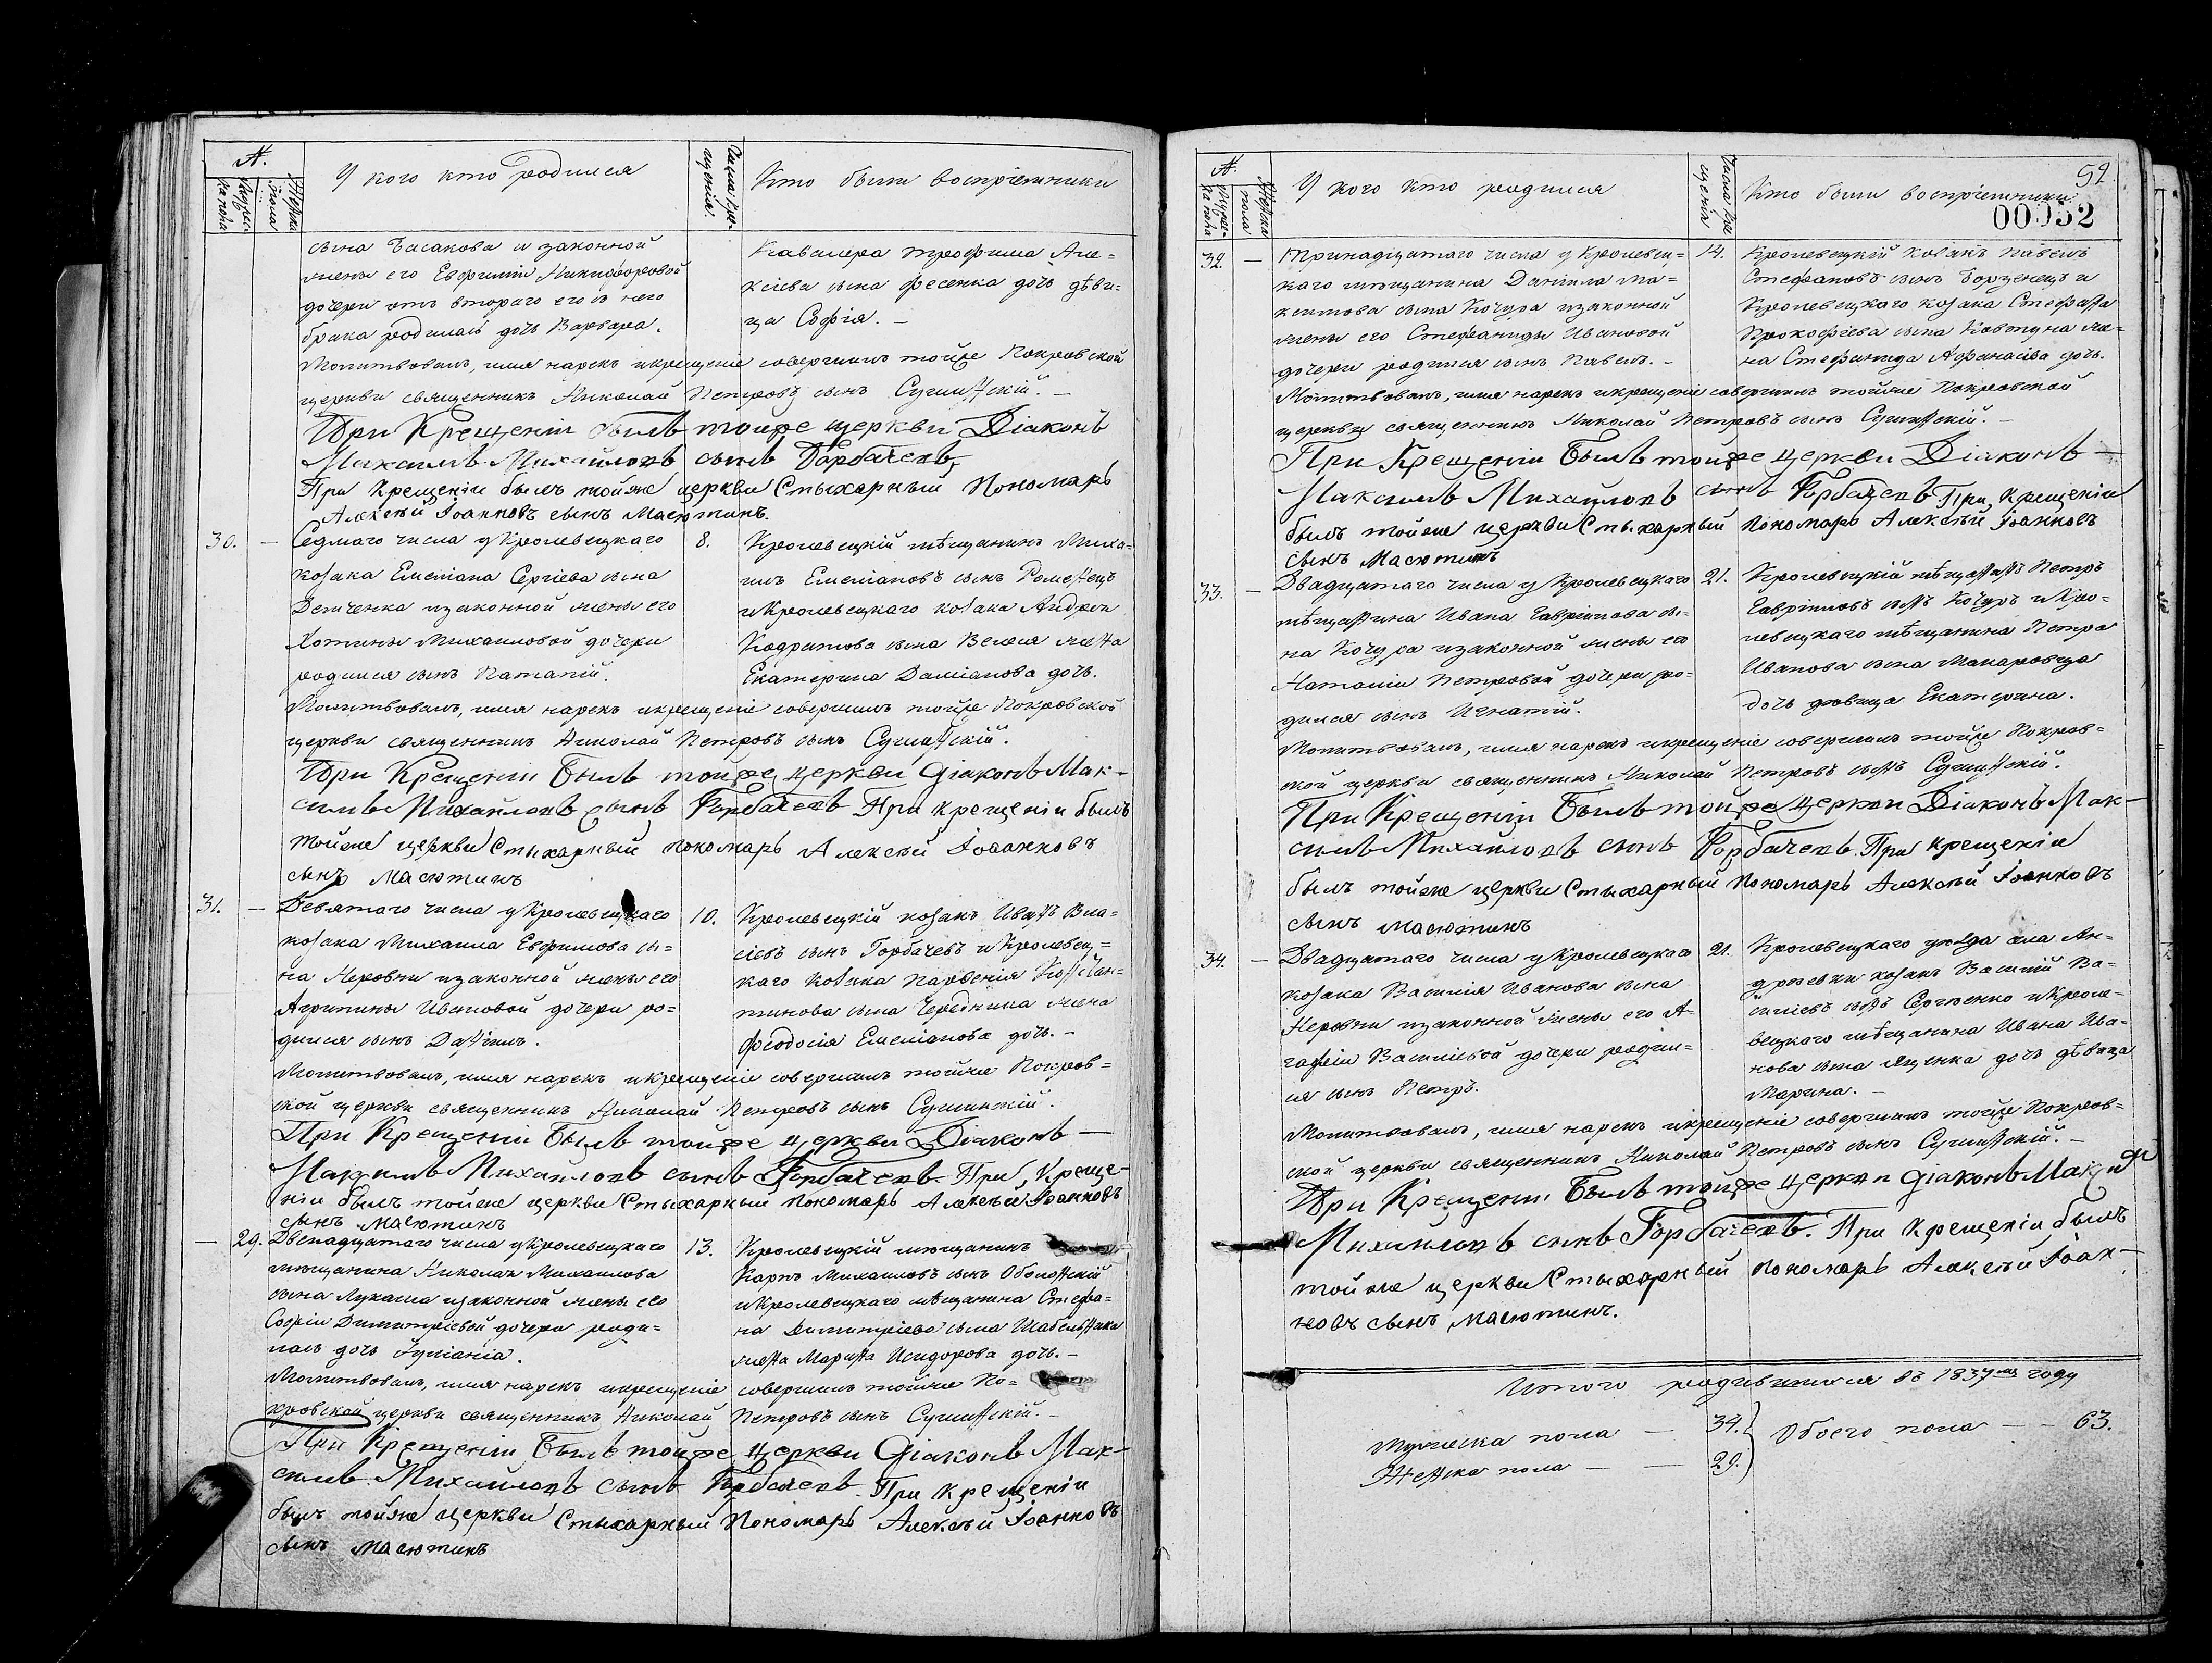 №.
Мужеска пола
Женска пола
У кого кто родился
Числа крещенія.
Кто были воспріемники
сына Басакова и законной
жены его Евфиміи Никифоровой
дочери отъ втораго его съ нею
брака родилась дочь Варвара.
Кавалера Трофима Але=
ксіева сына Фесенка дочь дѣви=
ца Софія. —
Молитвовалъ, имя нарекъ и крещеніе совершилъ тойже Покровской
церкви священникъ Николай Петровъ сынъ Сушинскій. —
При Крещеніи былъ тойже церкви Діаконъ
Максимъ Михайловъ сынъ Горбачевъ,
При Крещеніи былъ тойже церкви Стыхарный Пономарь
Алексѣй Іоанновъ сынъ Масютинъ.
30. —
Седмаго числа у Кролевецкаго
козака Емеліана Сергіева сына
Демченка и законной жены его
Хотины Михаиловой дочери
родился сынъ Патапій.
8.
Кролевецкій мѣщанинъ Миха=
илъ Емеліановъ сынъ Роменецъ
и Кролевецкаго козака Андрея
Кодратова сына Велея жена
Екатерина Даміанова дочь.
Молитвовалъ, имя нарекъ и крещеніе совершилъ тойже Покровской
церкви священникъ Николай Петровъ сынъ Сушинскій.
При Крещеніи Былъ тойже церкви Діаконъ Мак-
симъ Михайловъ сынъ Горбачевъ При крещеніи былъ
тойже церкви Стыхарный пономарь Алексѣй Іоанновъ
сынъ Масютинъ
31. —
Девятаго числа у Кролевецкаго
козака Михаила Евфимова сы=
на Неровни и законной жены его
Агрипины Ивановой дочери ро=
дился сынъ Даніилъ.
10.
Кролевецкій козакъ Иванъ Вла=
сіевъ сынъ Горбачевъ и Кролевец=
каго козака Парфенія Констан=
тинова сына Чередника жена
Феодосія Емеліанова дочь. —
Молитвовалъ, имя нарекъ и крещеніе совершилъ тойже Покров=
ской церкви священникъ Николай Петровъ сынъ Сушинскій.
При Крещеніи Былъ тойже церкви Діаконъ —
Максимъ Михайловъ сынъ Горбачевъ При Креще-
ніи былъ тойже церкви Стыхарный пономарь Алексѣй Іоанновъ
сынъ Масютинъ
— 29.
Двенадцатаго числа у Кролевецкаго
мѣщанина Николая Михаилова
сына Лукаша и законной жены его
Софіи Димитріевой дочери роди=
лась дочь Іуліанія.
13.
Кролевецкій мѣщанинъ
Карпъ Михаиловъ сынъ Оболонскій
и Кролевецкаго мѣщанина Стефа=
на Димитріева сына Шабельника
жена Марина Исидорова дочь. —
Молитвовалъ, имя нарекъ и крещеніе совершилъ тойже По=
кровской церкви священникъ Николай Петровъ сынъ Сушинскій. —
При Крещеніи Былъ тойже церкви Діаконъ Мак-
симъ Михайловъ сынъ Горбачевъ. При крещеніи
былъ тойже церкви Стыхарный Пономарь Алексѣй Іоанновъ
сынъ Масютинъ
№.
Мужеска пола
Женска пола
У кого кто родился
Числа крещенія
Кто были воспріемники
52.
00052
32. —
Тринадцатаго числа у Кролевец=
каго мѣщанина Даніила Ма=
ксимова сына Кочура и законной
жены его Стефаниды Ивановой
дочери родился сынъ Павелъ. —
14.
Кролевецкій козакъ Павелъ
Стефановъ сынъ Борзенецъ и
Кролевецкаго козака Стефана
Прокофіева сына Ковтуна же=
на Стефанида Афанасіева дочь.
Молитвовалъ, имя нарекъ и крещеніе совершилъ тойже Покровской
церкви священникъ Николай Петровъ сынъ Сушинскій. —
При Крещеніи Былъ тойже церкви Діаконъ —
Максимъ Михайловъ сынъ Горбачевъ При Крещеніи
былъ тойже церкви Стыхарный пономарь Алексѣй Іоанновъ
сынъ Масютинъ
33. —
Двадцатаго числа у Кролевецкаго
мѣщанина Ивана Гавріилова сы=
на Кочура и законной жены его
Наталіи Петровой дочери ро=
дился сынъ Игнатій.
21.
Кролевецкій мѣщанинъ Петръ
Гавріиловъ сынъ Кочуръ и Кро=
левецкаго мѣщанина Петра
Иванова сына Макаровца
дочь девица Екатерина.
Молитвовалъ, имя нарекъ и крещеніе совершилъ тойже Покров=
ской церкви священникъ Николай Петровъ сынъ Сушинскій.
При Крещеніи Былъ тойже Церкви Діаконъ Мак-
симъ Михайловъ сынъ Горбачевъ. При крещеніи
былъ тойже церкви Стыхарный Пономарь Алексѣй Іоанновъ
сынъ Масютинъ
34. —
Двадцатаго числа у Кролевецкаго
козака Василія Иванова сына
Неровни и законной жены его А=
гафіи Василіевой дочери родил=
ся сынъ Петръ.
21.
Кролевецкаго уѣзда села Ан=
дреевки козакъ Василій Ва=
силіевъ сынъ Сергіенко и Кроле=
вецкаго мѣщанина Ивана Ива=
нова сына Яценка дочь дѣвица
Марина. —
Молитвовалъ, имя нарекъ и крещеніе совершилъ тойже Покров=
ской церкви священникъ Николай Петровъ сынъ Сушинскій. —
При Крещеніи Былъ тойже Церкви Діаконъ Максимъ
Михайловъ сынъ Горбачевъ. При Крещеніи былъ
тойже церкви Стыхарный пономарь Алексѣй Іоан-
новъ сынъ Масютинъ.
Итого родившихся въ 1837мъ году
Мужеска пола — 34.
Женска пола — — 29.
Обоего пола — — 63.